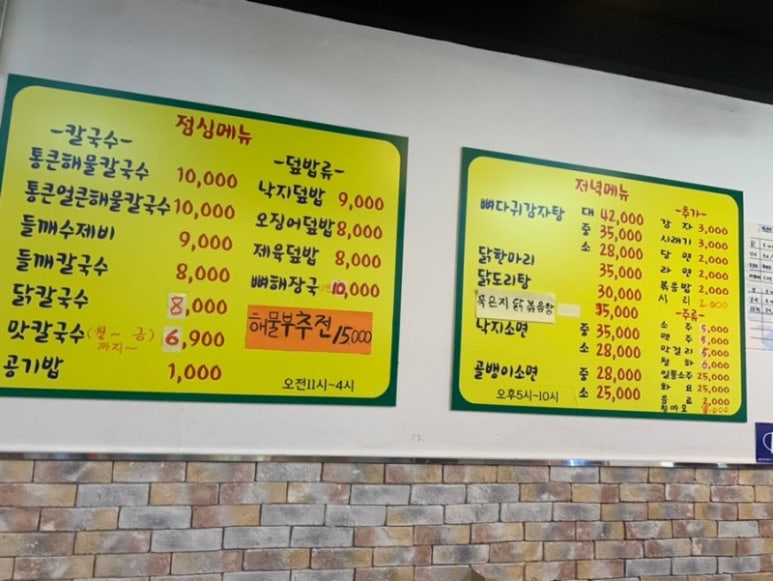 점심메뉴
-칼국수-
통큰해물칼국수 10,000
통큰얼큰해물칼국수 10,000
들깨수제비 9,000
들깨칼국수 8,000
닭칼국수 8,000
맛칼국수(월~금까지~) 6,900
공기밥 1,000
-덮밥류-
낙지덮밥 9,000
오징어덮밥 8,000
제육덮밥 8,000
뼈해장국 10,000
해물부추전 15,000
오전11시~4시
저녁메뉴
뼈다귀감자탕 대 42,000
중 35,000
소 28,000
닭한마리 35,000
닭도리탕 30,000
묵은지 닭볶음탕 35,000
낙지소면 중 35,000
소 28,000
골뱅이소면 중 28,000
소 25,000
오후5시~10시
-추가-
감자 3,000
시래기 3,000
당면 2,000
라면 2,000
볶음밥 2,000
사리 2,000
-주류-
소주 5,000
맥주 5,000
막걸리 5,000
청하 6,000
일품소주 25,000
화요 25,000
음료 2,000